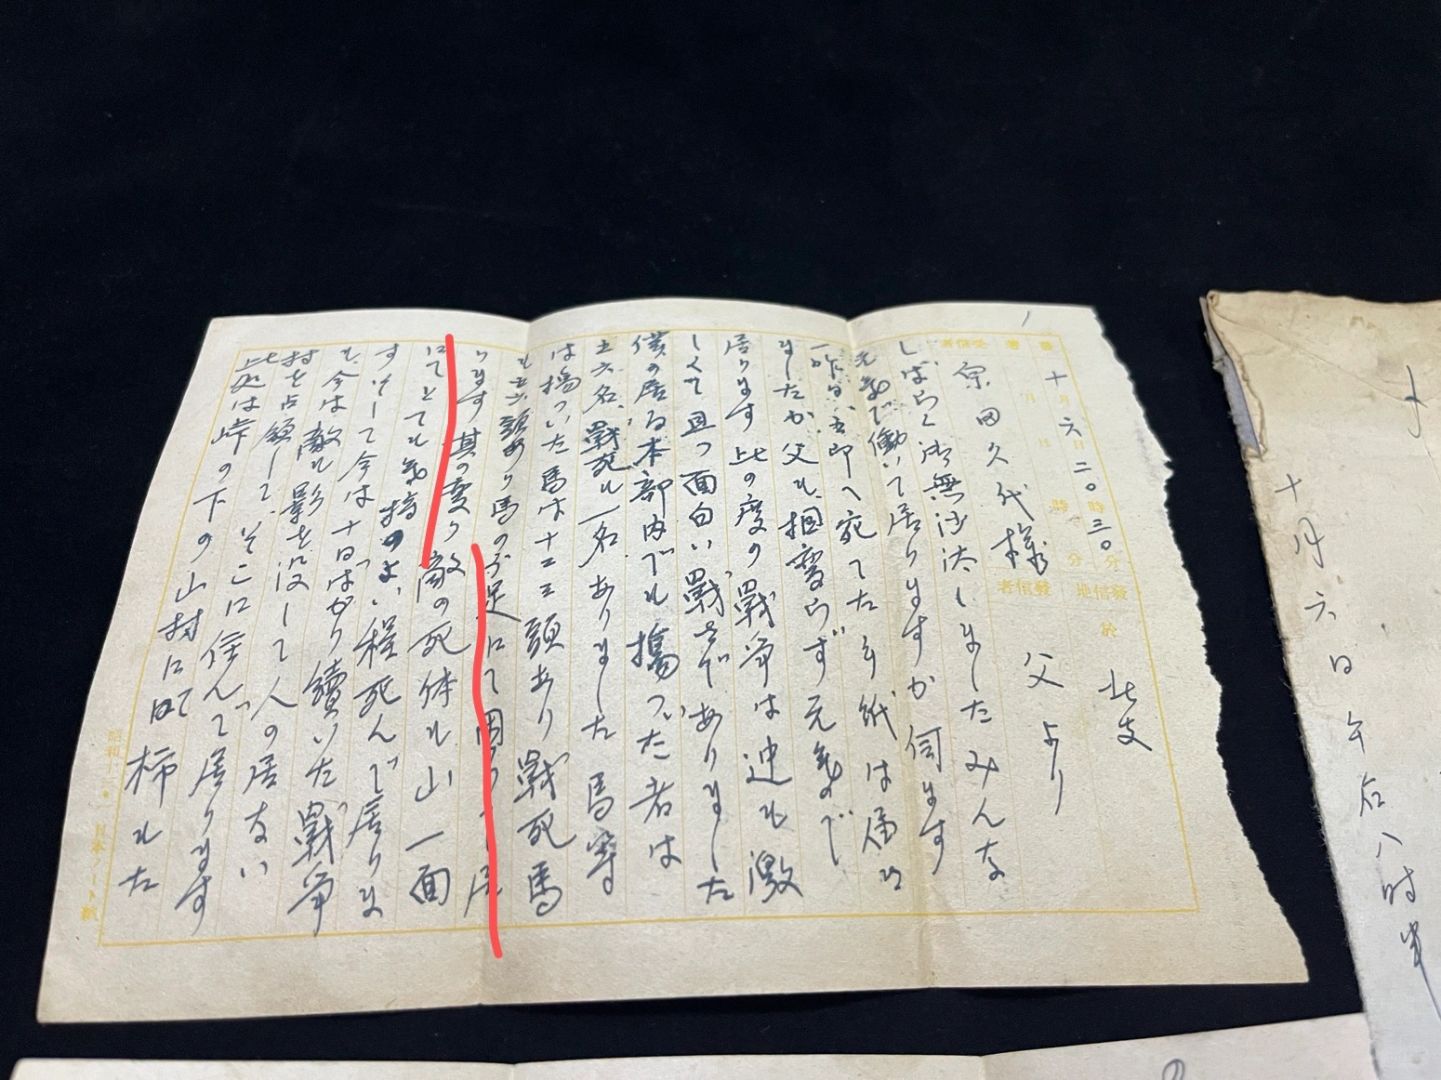 十月六日二〇時三〇分
發信地
發信者
受信者
北支
父より
久代様
しばらく御無沙汰しましたみんな
元気で働いて居りますか伺ます
一昨日
ましたか父も相変らず元気で
居ります此の度の戰争は迚も激
しくて且つ面白い戰さでありました
僕の居る本部内でも傷ついた者は
五六名、戰死も一名ありました馬等
は傷ついた馬は十二三頭あり戰死馬
も五六頭あり馬の不足にて困って居
ります其の変り敵の死体も山一面
にてとても気持のよい程死んで居りま
すそして今は十日ばかり續いた戰争
も今は敵も影を没して人の居ない
村を占領して、そこに住んで居ります
此処は峠の下の山村にて柿もた
十月六日午后八時半